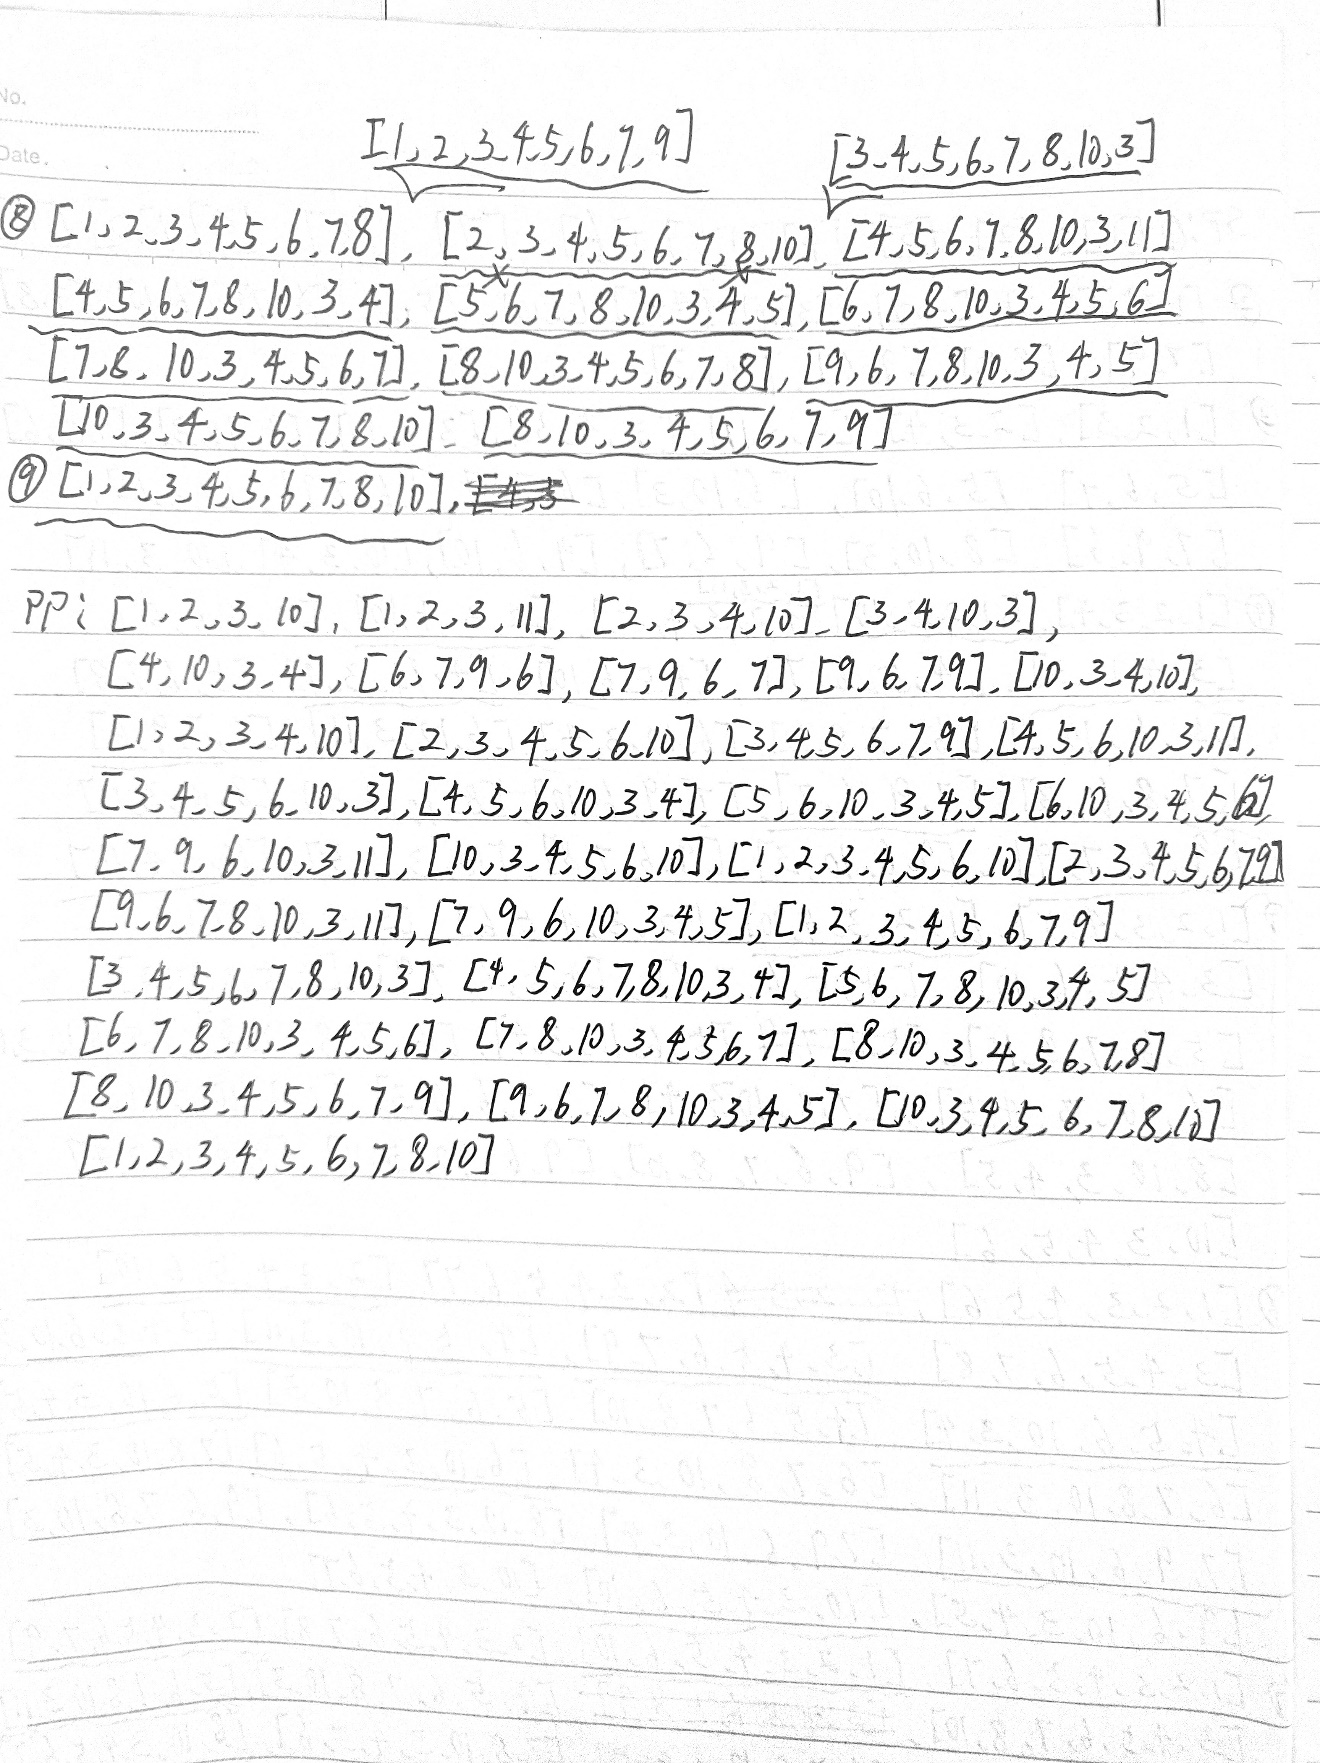 No.
Date.
[1,2,3,4,5,6,7,9] [3,4,5,6,7,8,10,3]
⑧ [1,2,3,4,5,6,7,8], [2,3,4,5,6,7,8,10], [4,5,6,7,8,10,3,11]
[4,5,6,7,8,10,3,4], [5,6,7,8,10,3,4,5], [6,7,8,10,3,4,5,6]
[7,8,10,3,4,5,6,7], [8,10,3,4,5,6,7,8], [9,6,7,8,10,3,4,5]
[10,3,4,5,6,7,8,10], [8,10,3,4,5,6,7,9]
⑨ [1,2,3,4,5,6,7,8,10],
PP: [1,2,3,10], [1,2,3,11], [2,3,4,10], [3,4,10,3],
[4,10,3,4], [6,7,9,6], [7,9,6,7], [9,6,7,9], [10,3,4,10],
[1,2,3,4,10], [2,3,4,5,6,10], [3,4,5,6,7,9], [4,5,6,10,3,11],
[3,4,5,6,10,3], [4,5,6,10,3,4], [5,6,10,3,4,5], [6,10,3,4,5,6],
[7,9,6,10,3,11], [10,3,4,5,6,10], [1,2,3,4,5,6,10], [2,3,4,5,6,7,9]
[9,6,7,8,10,3,11], [7,9,6,10,3,4,5], [1,2,3,4,5,6,7,9]
[3,4,5,6,7,8,10,3], [4,5,6,7,8,10,3,4], [5,6,7,8,10,3,4,5]
[6,7,8,10,3,4,5,6], [7,8,10,3,4,5,6,7], [8,10,3,4,5,6,7,8]
[8,10,3,4,5,6,7,9], [9,6,7,8,10,3,4,5], [10,3,4,5,6,7,8,10]
[1,2,3,4,5,6,7,8,10]